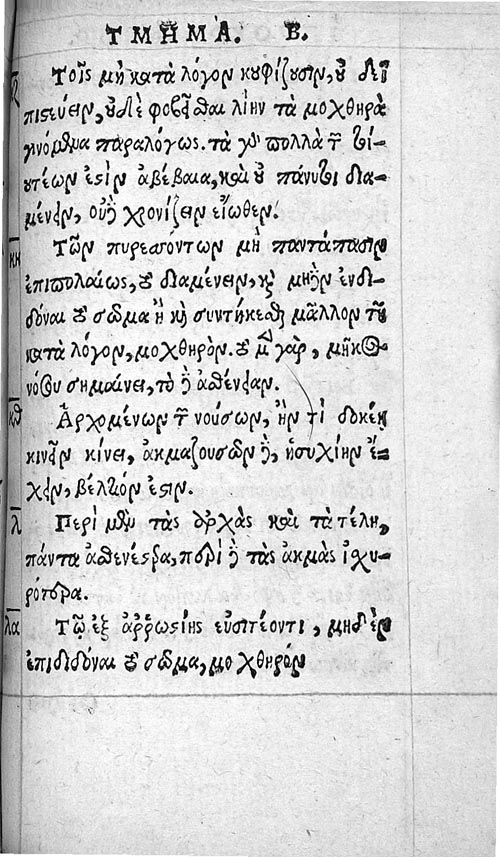 ΤΜΗΜΑ. Β.
κζ Τοῖς μὴ κατὰ λόγον κουφίζουσιν, οὐ δεῖ
πιστεύειν, οὐδὲ φοβεῖσθαι λίην τὰ μοχθηρὰ
γινόμενα παραλόγως. τὰ γὰρ πολλὰ τῶν τοι-
ουτέων ἐστὶν ἀβέβαια, καὶ οὐ πάνυ τι δια-
μένειν, οὐδὲ χρονίζειν εἴωθεν.
κη Τῶν πυρεσσόντων μὴ παντάπασιν
ἐπιπολαίως, τὸ διαμένειν, καὶ μηδὲν ἐνδι-
δόναι τὸ σῶμα ἢ καὶ συντήκεσθαι μᾶλλον τοῦ
κατὰ λόγον, μοχθηρὸν. τὸ μὲν γὰρ, μῆκος
νόσου σημαίνει, τὸ δὲ ἀσθένειαν.
κθ Ἀρχομένων τῶν νούσων, ἤν τὶ δοκέῃ
κινεῖν κίνει, ἀκμαζουσῶν δὲ, ἡσυχίην ἔ-
χειν, βέλτιόν ἐστιν.
λ Περὶ μὲν τὰς ἀρχὰς καὶ τὰ τέλη,
πάντα ἀσθενέστερα, περὶ δὲ τὰς ἀκμὰς ἰσχυ-
ρότερα.
λα Τῷ ἐξ ἀῤῥωστίης εὐσιτέοντι, μηδὲν
ἐπιδιδόναι τὸ σῶμα, μοχθηρόν